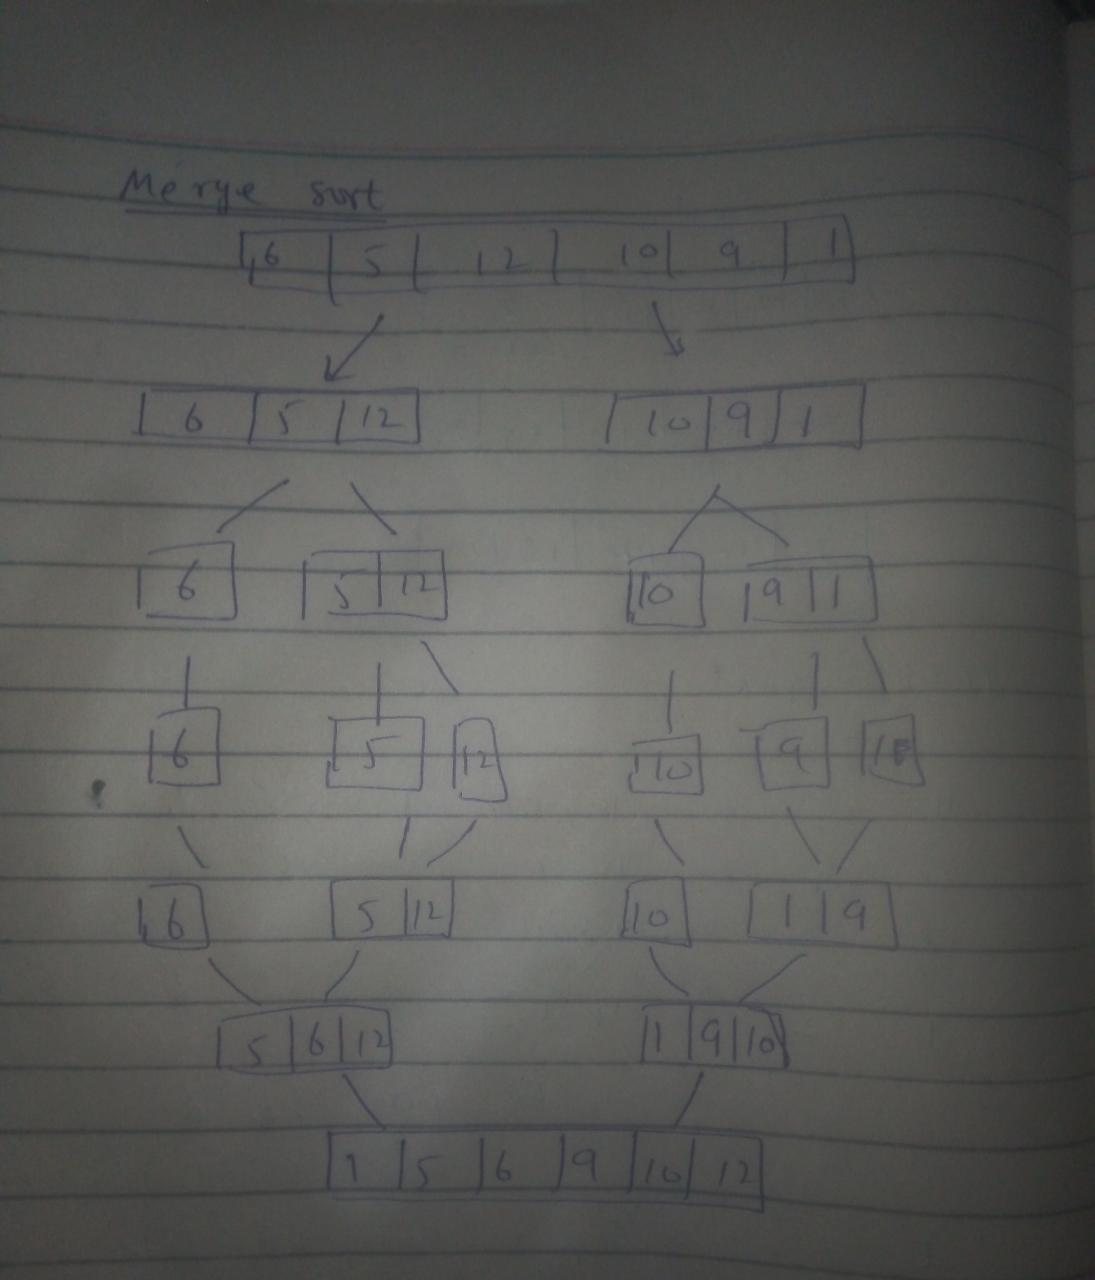 Merge sort
6 5 12 10 9 1
6 5 12 10 9 1
6 5 12 10 9 1
6 5 12 10 9 1
6 5 12 10 1 9
5 6 12 1 9 10
1 5 6 9 10 12